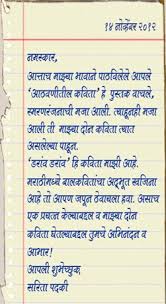 १४ नोव्हेंबर २०१२
नमस्कार,
आत्ताच माझ्या भावाने पाठविलेले आपले
'आठवणीतील कविता' हे पुस्तक वाचले,
स्मरणरंजनाची मजा आली. त्याहूनही मजा
आली ती माझ्या दोन कविता त्यात
असलेल्या पाहून.
'डरांव डरांव' हि कविता माझी आहे.
मराठीमध्ये बालकवितांचा अद्भूत खजिना
आहे तो आपण जपून ठेवायला हवा. असाच
एक प्रयत्न केल्याबद्दल व माझ्या दोन
कविता घेतल्याबद्दल तुमचे अभिनंदन व
आभार!
आपली शुभेच्छुक,
सरिता पदकी